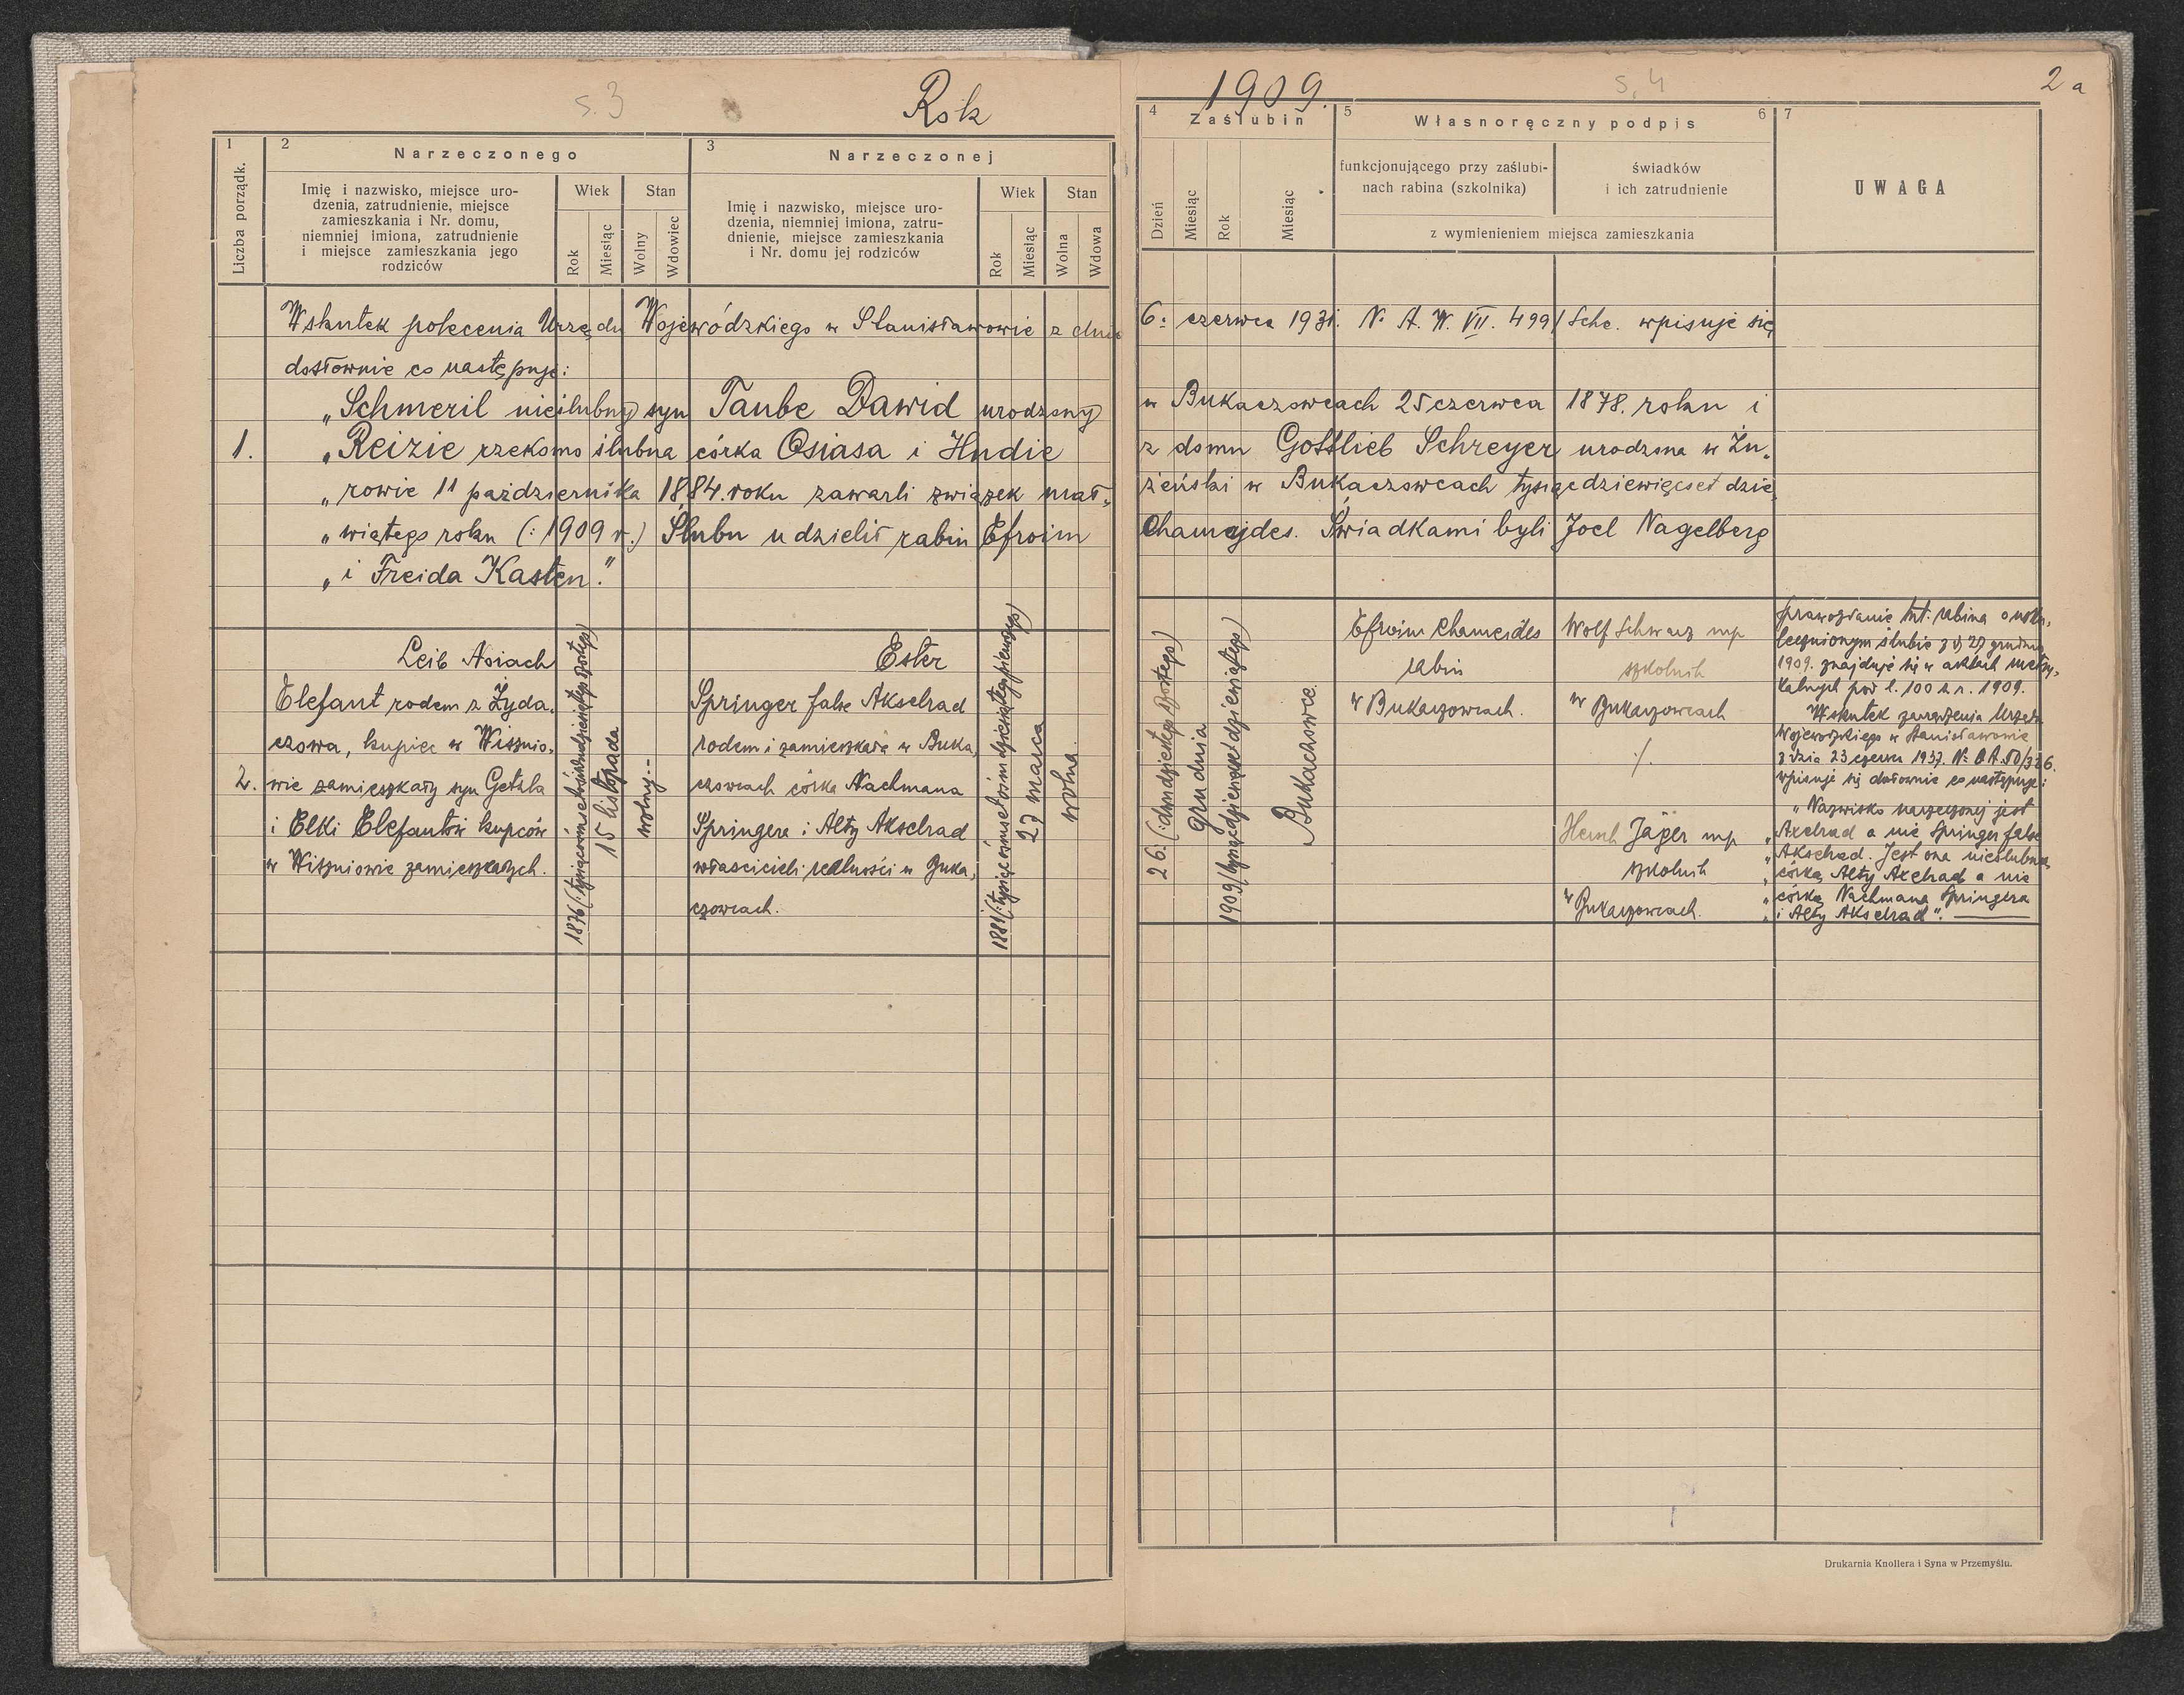 s.3
Rok
1909.
s. 4
2 a
1
Liczba porządk.
2
Narzeczonego
Imię i nazwisko, miejsce uro-
dzenia, zatrudnienie, miejsce
zamieszkania i Nr. domu,
niemniej imiona, zatrudnienie
i miejsce zamieszkania jego
rodziców
Wiek
Rok
Miesiąc
Stan
Wolny
Wdowiec
3
Narzeczonej
Imię i nazwisko, miejsce uro-
dzenia, niemniej imiona, zatru-
dnienie, miejsce zamieszkania
i Nr. domu jej rodziców
Wiek
Rok
Miesiąc
Stan
Wolna
Wdowa
4
Zaślubin
Dzień
Miesiąc
Rok
Miesiąc
5
Własnoręczny podpis
6
funkcjonującego przy zaślubi-
nach rabina (szkolnika)
świadków
i ich zatrudnienie
z wymienieniem miejsca zamieszkania
7
UWAGA
Wskutek polecenia Urzędu Wojewódzkiego w Stanisławowie z dnia 6. czerwca 1931. N. A. W. VII. 499/ Sche. wpisuje się
dosłownie co następuje:
„Schmeril nieślubny syn Taube Dawid urodzony w Bukaczowcach 25 czerwca 1878. roku i
1.
„Reizie rzekomo ślubna córka Osiasa i Hudie z domu Gottlieb Schreyer urodzona w Żu„
„rowie 11 października 1884. roku zawarli związek mał„ żeński w Bukaczowcach tysiąc dziewięćset dzie„
„wiątego roku (: 1909 r.) Ślubu udzielił rabin Efroim Chamajdes. Świadkami byli Joel Nagelberg
„i Freida Kasten."
2.
Leib Asiach
Elefant rodem z Żyda„
czowa, kupiec w Wisznio„
wie zamieszkały syn Getzla
i Elki Elefantów kupców
w Wiszniowie zamieszkałych.
1876 (: tysiąc ośmset siedmdziesiątego szóstego)
15 listopada
wolny.-
Ester
Springer false Akselrad
rodem i zamieszkała w Buka„
czowcach córka Nachmana
Springera i Alty Akselrad
właścicieli realności w Buka„
czowcach.
1881 (: tysiąc ośmset ośmdziesiątego pierwszego)
27 marca
wolna.
26. (: dwudziestego szóstego)
grudnia
1909 (: tysiąc dziewięćset dziewiątego)
Bukaczowce.
Efroim Chameides
rabin
w Bukaczowcach.
Wolf Schwarz mp
szkolnik
w Bukaczowcach
./.
Jäger mp
szkolnik
w Bukaczowcach.
Sprawozdanie tut. rabina o usku„
tecznionym ślubie z d. 27 grudnia
1909. znajduje się w aktach metry„
kalnych pod l. 100 z r. 1909.
Wskutek zarządzenia Urzędu
Wojewódzkiego w Stanisławowie
z dnia 23 czerwca 1937. N:
wpisuje się dosłownie co następuje:
„Nazwisko narzeczonej jest
„Axelrad a nie Springer false
„Akselrad. Jest ona nieślubną
„córką Alty Axelrad a nie
„córką Nachmana Springera
„i Alty Akselrad".
Drukarnia Knollera i Syna w Przemyślu.